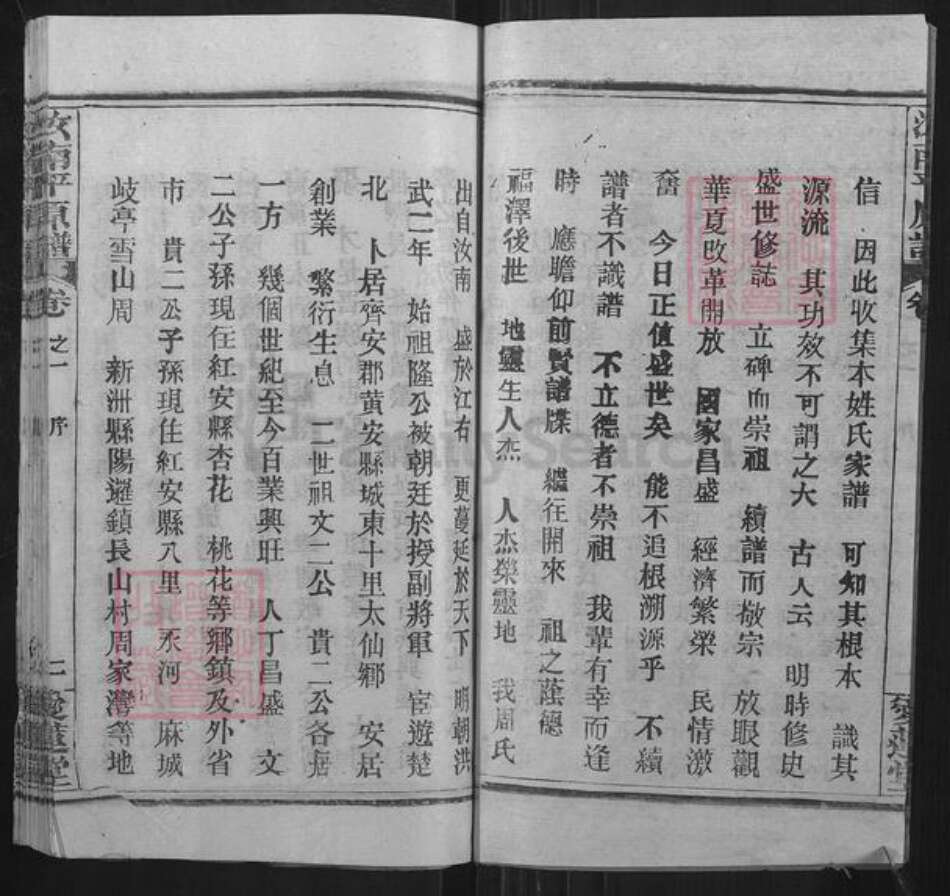 信 因此收集本姓氏家譜 可知其根本 識其
源流 其功效不可謂之大 古人云 明時修史
盛世修誌 立碑而崇祖 續譜而敬宗 放眼觀
華夏改革開放 國家昌盛 經濟繁榮 民情激
奮 今日正值盛世矣 能不追根溯源乎 不續
譜者不識譜 不立德者不崇祖 我輩有幸而逢
時 應瞻仰前賢譜牒 繼往開來 祖之蔭德
福澤後世 地靈生人杰 人杰榮靈地 我周氏
出自汝南 盛於江右 更蔓延於天下 明朝洪
武二年 始祖隆公被朝廷於授副將軍 宦遊楚
北 卜居齊安郡黄安縣城東十里太仙鄉 安居
創業 繁衍生息 二世祖文二公 貴二公各居
一方 幾個世紀至今百業興旺 人丁昌盛 文
二公子孫現住紅安縣杏花 桃花等鄉鎮及外省
市 貴二公子孫現住紅安縣八里 永河 麻城
岐亭雪山周 新洲縣陽邏鎮長山村周家灣等地
汝南平原譜 卷之一 序 二 愛蓮堂